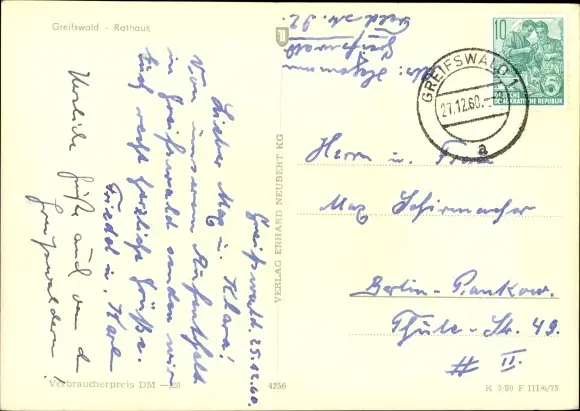 Greifswald - Rathaus
Greifswald. 25.12.60.
Lieber Max u. Klara!
Von unserem Aufenthalt
in Greifswald senden wir
Euch recht herzliche Grüße.
Friedel u. Karl
Herzliche Grüße auch von d.
Greifswaldern!
Verbraucherpreis DM —,20
4256
VERLAG ERHARD NEUBERT KG
Abs:
Greifswald
10
DEUTSCHE
DEMOKRATISCHE REPUBLIK
GREIFSWALD 1
27.12.60.
a
Herrn u. Frau
Max Schirmacher
Berlin-Pankow.
Thule-Str. 49.
II.
K 5/60 F 111